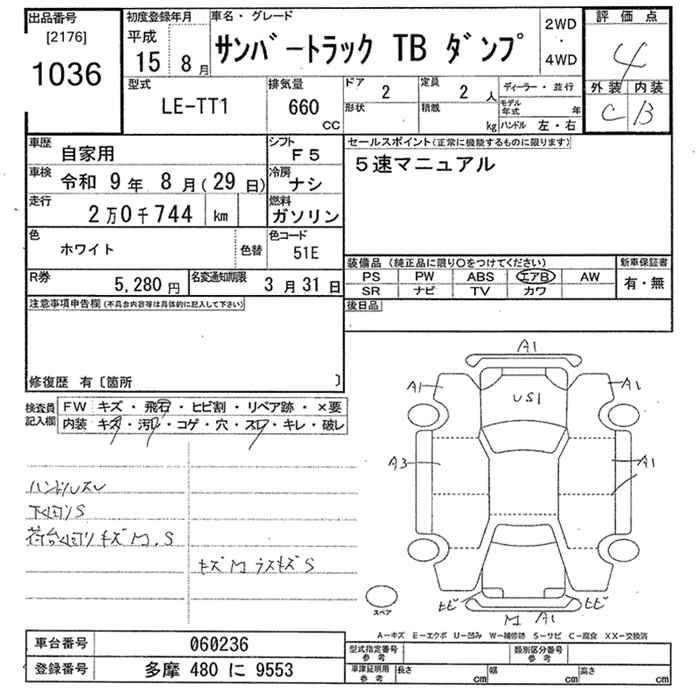 出品番号
[2176]
1036
初度登録年月
平成
15 8月
車名・グレード
サンバートラック TB ダンプ
2WD
・
4WD
評価点
4
外装 内装
C B
型式
LE-TT1
排気量
660
CC
ドア
2
形状
定員
2 人
積載
kg
ディーラー・並行
モデル年式 年
ハンドル 左・右
車歴
自家用
シフト
F5
車検
令和 9年 8月(29日)
冷房
ナシ
走行
2万0千744 km
燃料
ガソリン
色
ホワイト
色替
色コード
51E
R券
5,280円
名変通知期限
3月31日
セールスポイント(正常に機能するものに限ります)
5速マニュアル
装備品(純正品に限り○をつけてください)
PS PW ABS エアB AW
SR ナビ TV カワ
新車保証書
有・無
後日品
注意事項申告欄(不具合内容等は具体的に記入して下さい)
修復歴 有〔箇所 〕
検査員
記入欄
FW キズ・飛石・ヒビ割・リペア跡・×要
内装 キズ・汚レ・コゲ・穴・スレ・キレ・破レ
ハンドルスレ
下回りS
荷台回りキズM.S
キズM ラスキズS
A1
A1
A1
US1
A3
A1
ヒビ
ヒビ
M A1
スペア
A-キズ E-エクボ U-凹み W-補修跡 S-サビ C-腐食 XX-交換済
車台番号
060236
登録番号
多摩 480 に 9553
型式指定番号
参考
類別区分番号
参考
車庫証明用
参考
長さ cm
幅 cm
高さ cm